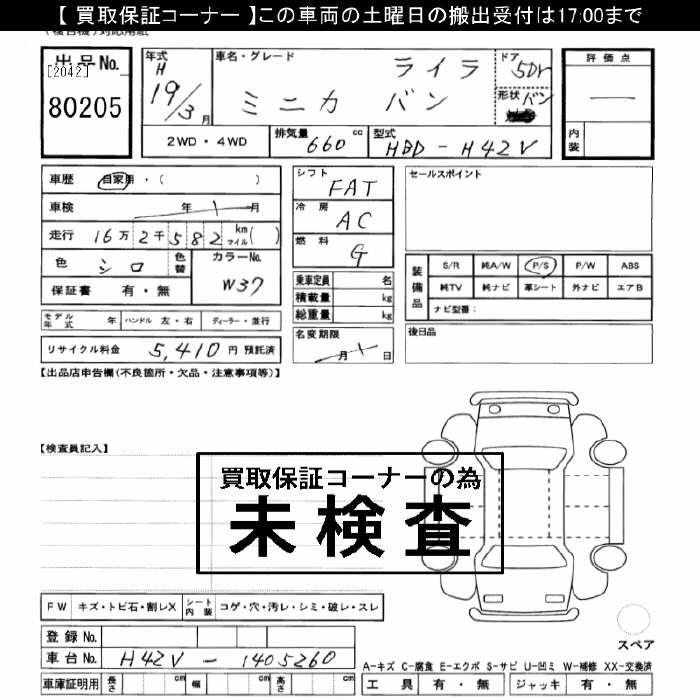 【 買取保証コーナー 】この車両の土曜日の搬出受付は17:00まで
出品No.
[2042]
80205
年式 車名・グレード ドア 評価点
H ライラ 5Dr
19/3月 ミニカ バン 形状 バン —
2WD・4WD 排気量 660 cc 型式 HBD-H42V 内装
車歴 自家用・( )
車検 年 月
走行 16万2千582 km マイル( )
色 シロ 色替 カラーNo. W37
保証書 有・無
モデル年式 年 ハンドル 左・右 ディーラー・並行
リサイクル料金 5,410 円 預託済
シフト FAT
冷房 AC
燃料 G
乗車定員 名
積載量 kg
総重量 kg
名変期限
月 日
セールスポイント
装備品 S/R 純A/W P/S P/W ABS
純TV 純ナビ 革シート 外ナビ エアB
ナビ型番:
後日品
【出品店申告欄(不良箇所・欠品・注意事項等)】
【検査員記入】
買取保証コーナーの為
未検査
FW キズ・トビ石・割レX シート内装 コゲ・穴・汚レ・シミ・破レ・スレ
スペア
登録No.
車台No. H42V-1405260
車庫証明用 長さ cm 幅 cm 高さ cm
A-キズ C-腐食 E-エクボ S-サビ U-凹ミ W-補修 XX-交換済
工具 有・無 ジャッキ 有・無